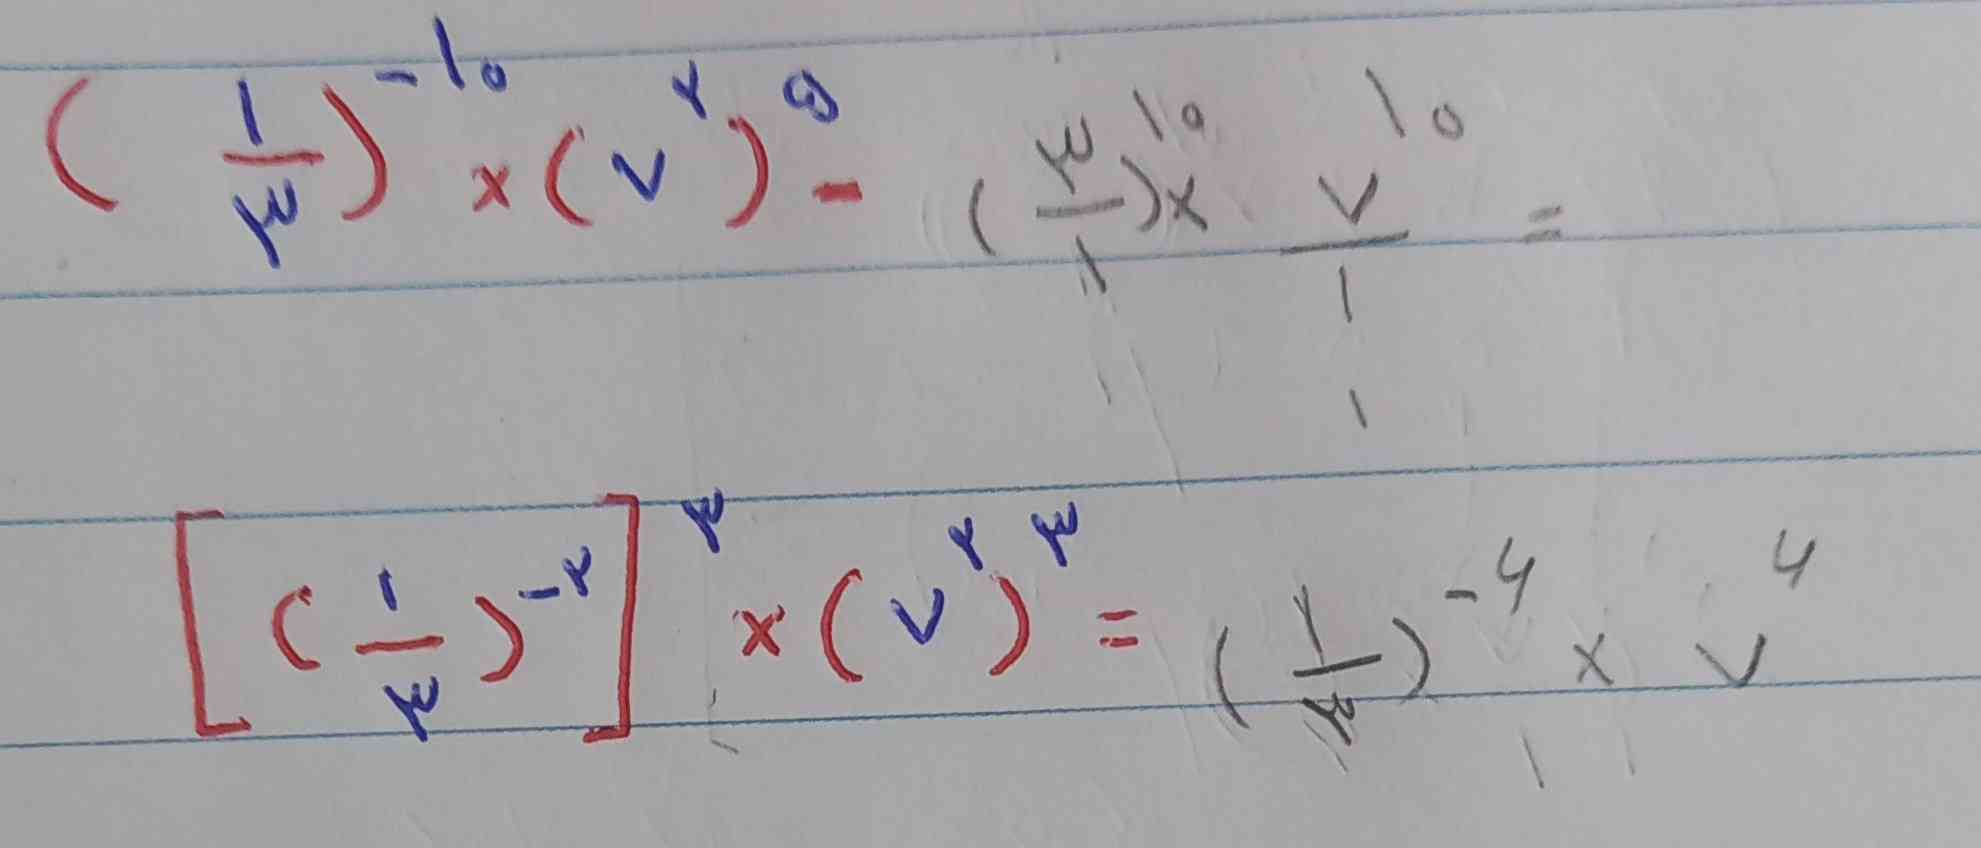 (۱/۳)^-۱۰ × (۷^۲)^۵ - (۳/۱)^۱۰ × ۷^۱۰/۱ =
[(۱/۳)^-۲]^۳ × (۷^۲)^۳ = (۱/۳)^-۶ × ۷^۶